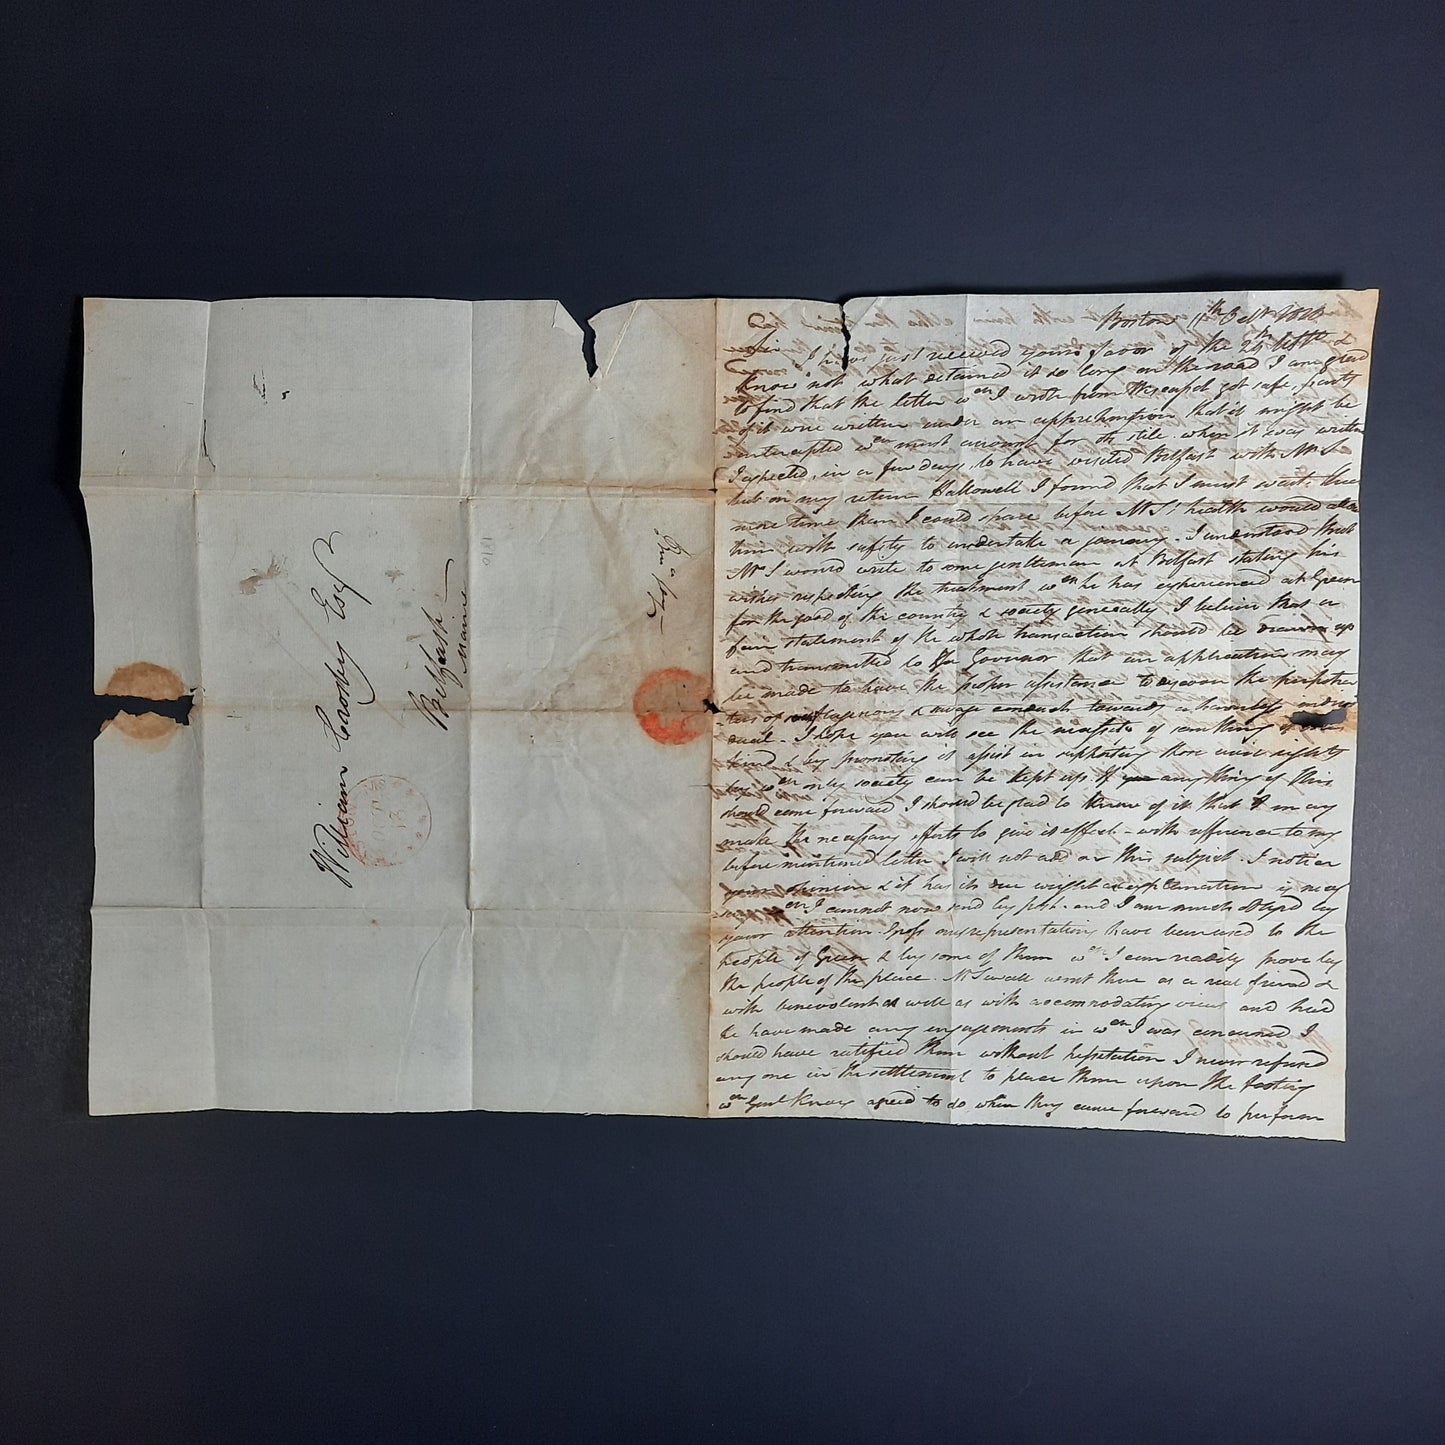 William Crosby Esqr
Belfast
Maine
Boston 11th Sept
Sir I have just received your favor of the 24th &
know not what detained it so long on the road I am glad
to find that the letter wch I wrote from got safe, parts
of it were written under an apprehension that it might be
intercepted wch must account for the stile. when it was written
I expected, in a few days, to have visited Belfast with Mr S
but on my return Hallowell I found that I must wait
more time than I could spare before Mr S' health would allow
him with safety to undertake a journey. I understood that
Mr S would write to some gentleman at Belfast stating his
wishes respecting the treatment wch he has experienced at Green
for the good of the country & society generally I believe that a
fair statement of the whole transaction should be drawn up
and transmitted to the Governor that an application may
be made to have the proper assistance to discover the perpetra
tors of outrageous & savage conduct towards a harmless indivi
dual - I hope you will see the necessity of something of
kind & by promoting it assist in supporting those civil rights
by wch only society can be kept up. If any thing of this
should come forward I should be glad to know of it that I may
make the necessary efforts to give it effect - with reference to my
before mentioned letter I will not add on this subject. I notice
your opinion & it has its due weight explanation is
wch I cannot now send by post - and I am much obliged by
your attention. Gross misrepresentations have been used to the
people of Green & by some of them wch I can readily prove by
the people of the place. Mr Sewall went there as a real friend &
with benevolent as well as with accommodating views and had
he have made any engagements in wch I was concerned I
should have ratified them without hesitation I never refused
any one in the settlement to place them upon the footing
wch Genl Knox agreed to do when they came forward to perform